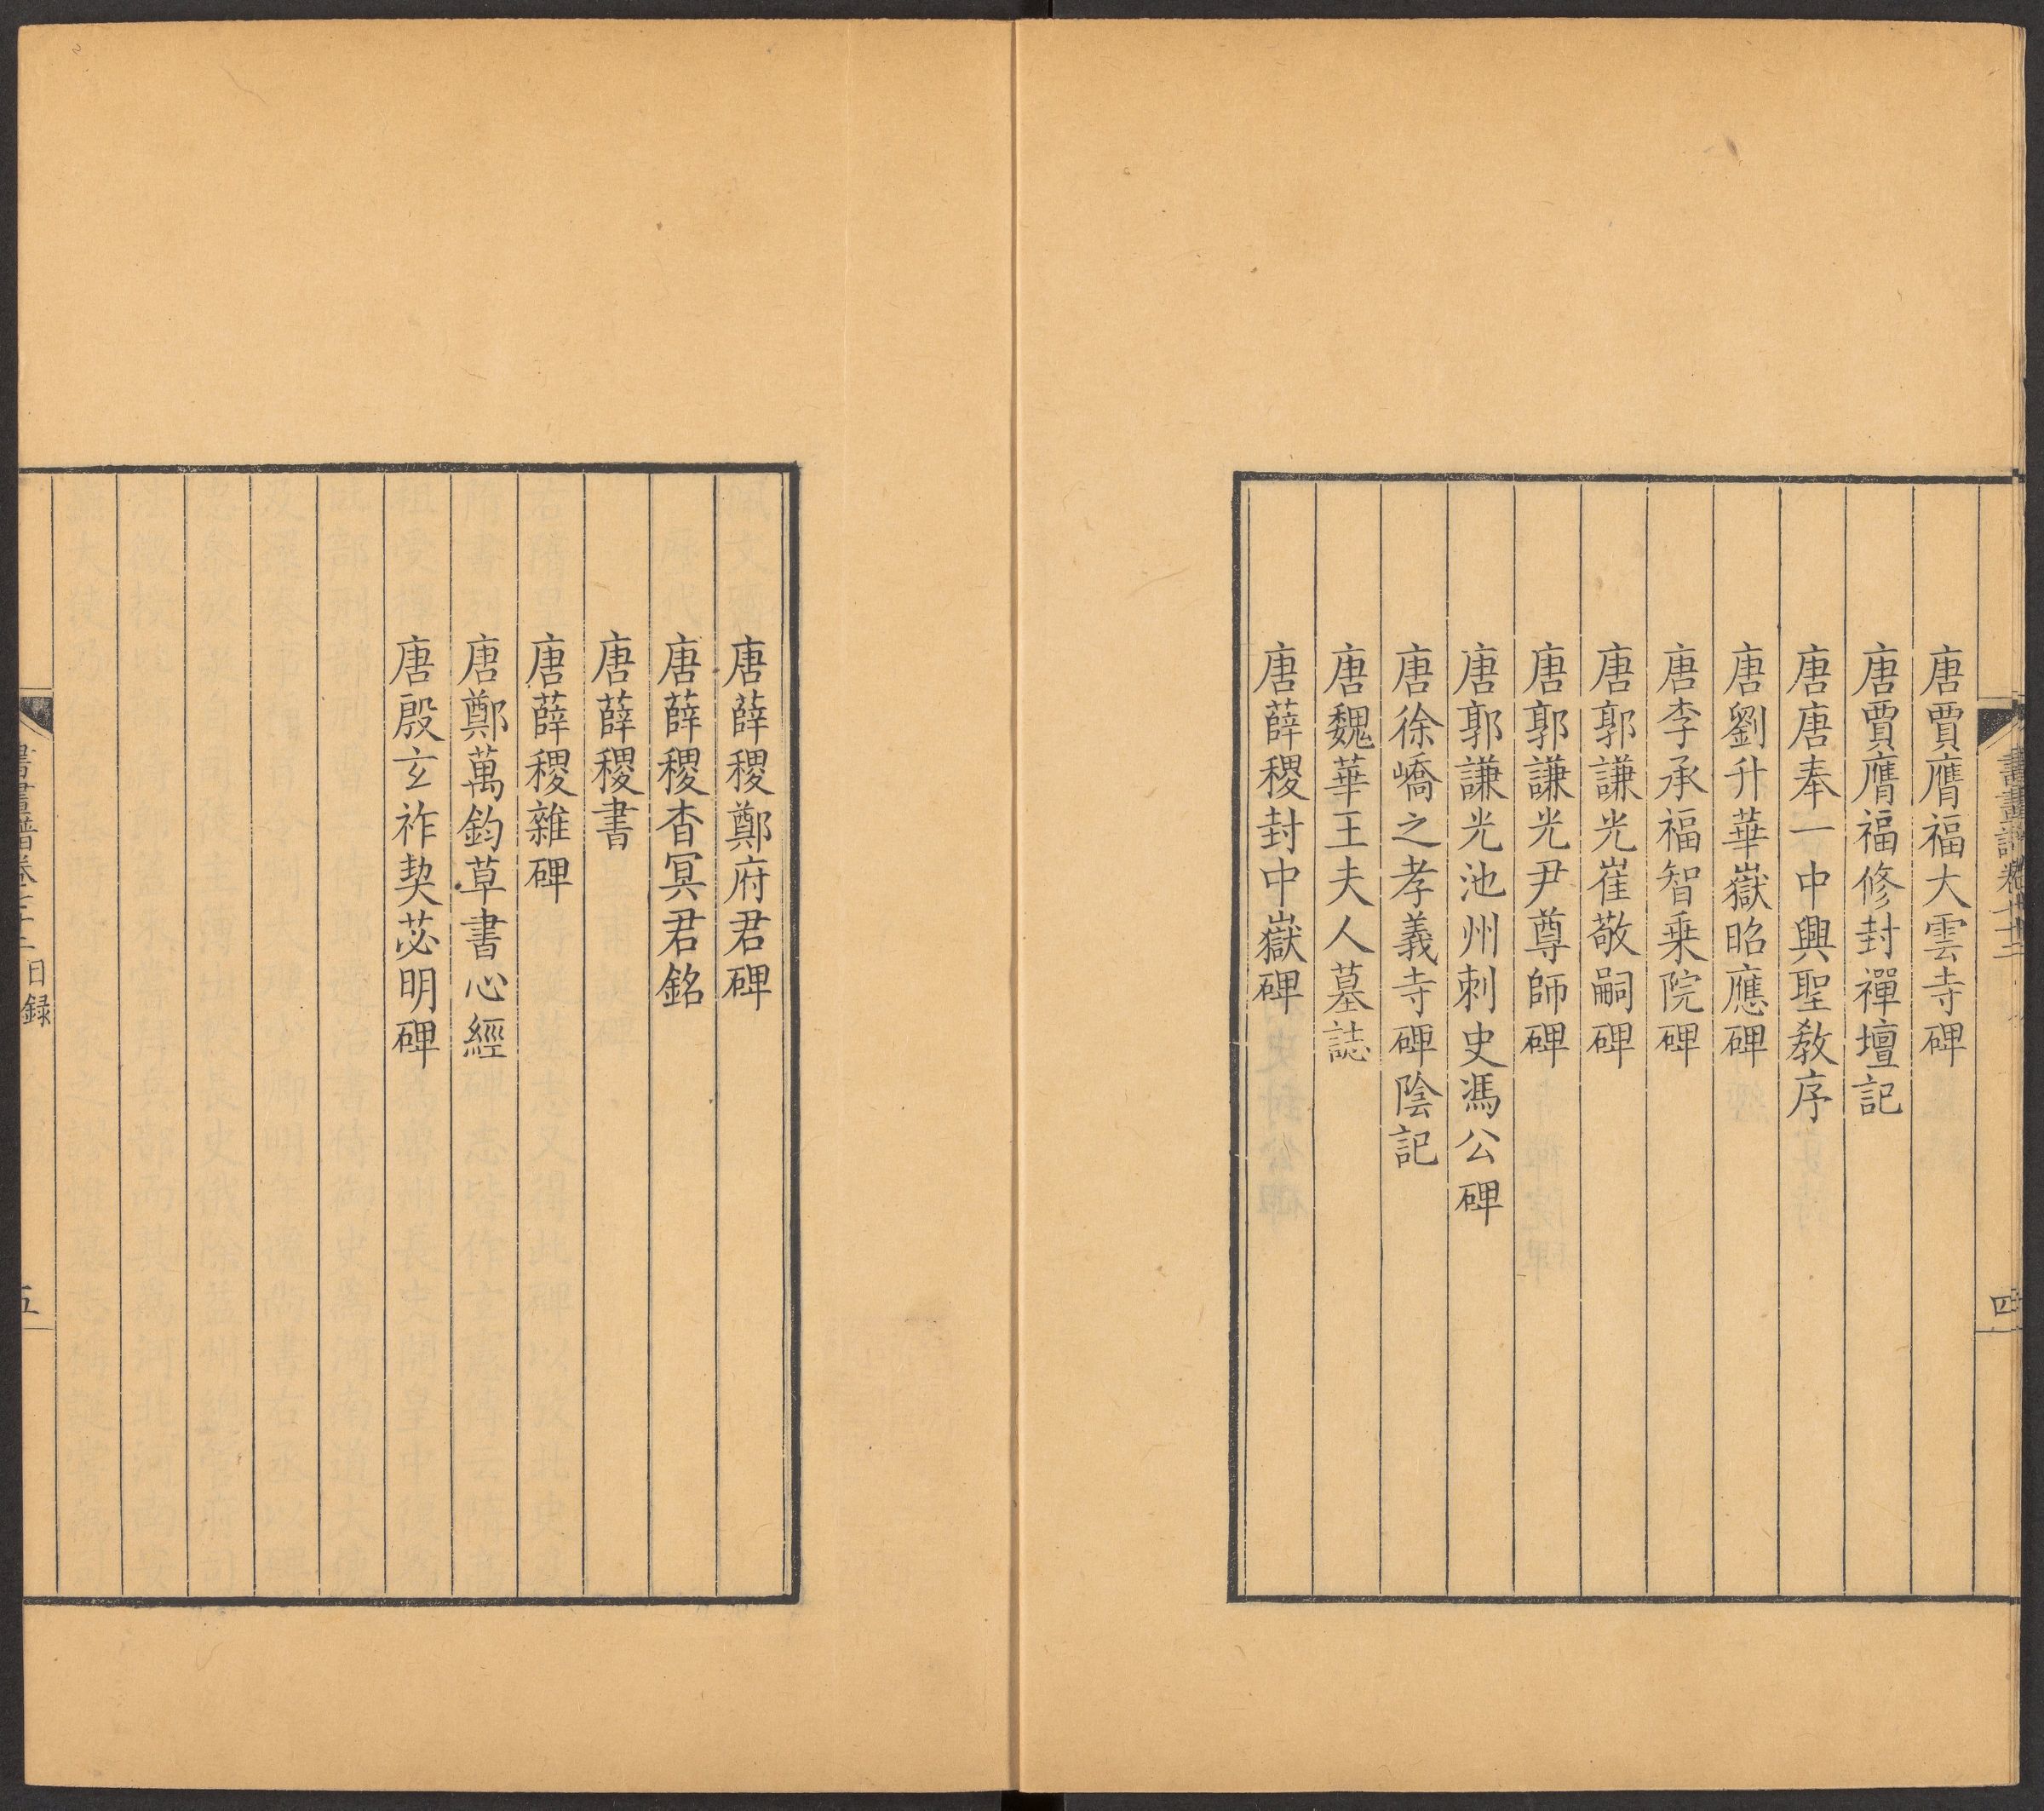 唐賈膺福大雲寺碑
唐賈膺福修封禪壇記
唐唐奉一中興聖教序
唐劉升華嶽昭應碑
唐李承福智乗院碑
唐郭謙光崔敬嗣碑
唐郭謙光尹尊師碑
唐郭謙光池州刺史馮公碑
唐徐嶠之孝義寺碑陰記
唐魏華王夫人墓誌
唐薛稷封中嶽碑
四
唐薛稷鄭府君碑
唐薛稷杳冥君銘
唐薛稷書
唐薛稷雜碑
唐鄭萬鈞草書心經
唐殷玄祚契苾明碑
書畫譜卷七十二目録
五